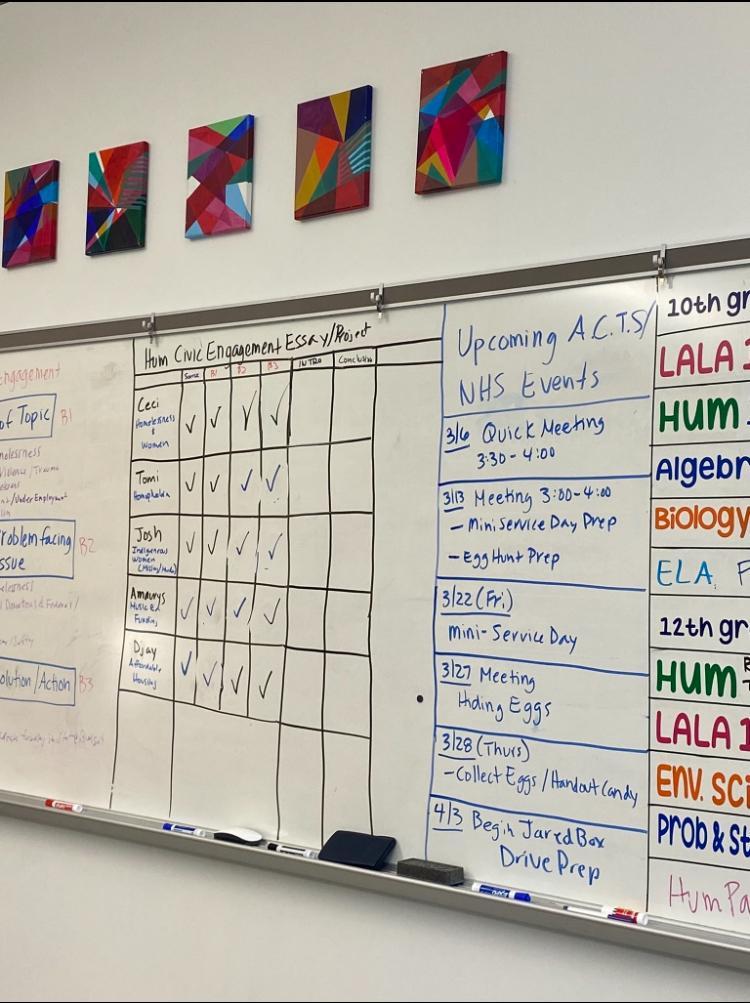 ngagement
of Topic B1
Problem facing
ssue B2
olution/Action B3
Hum Civic Engagement Essay/Project
B1 B2 B3 INTRO Conclusion
Ceci
Homelessness
&
Women
Tomi
Homophobia
Josh
Indigenous
Women
Amaurys
Music Ed
Funding
Djay
Affordable
Housing
Upcoming A.C.T.S/
NHS Events
3/6 Quick Meeting
3:30-4:00
3/13 Meeting 3:00-4:00
- Mini Service Day Prep
- Egg Hunt Prep
3/22 (Fri)
Mini-Service Day
3/27 Meeting
Hiding Eggs
3/28 (Thurs)
- Collect Eggs / Handout Candy
4/3 Begin Jared Box
Drive Prep
10th gr
LALA 1
HUM
Algebr
Biology
ELA
12th gr
HUM
LALA 1
ENV. SCI
PROB & St
Hum Pa